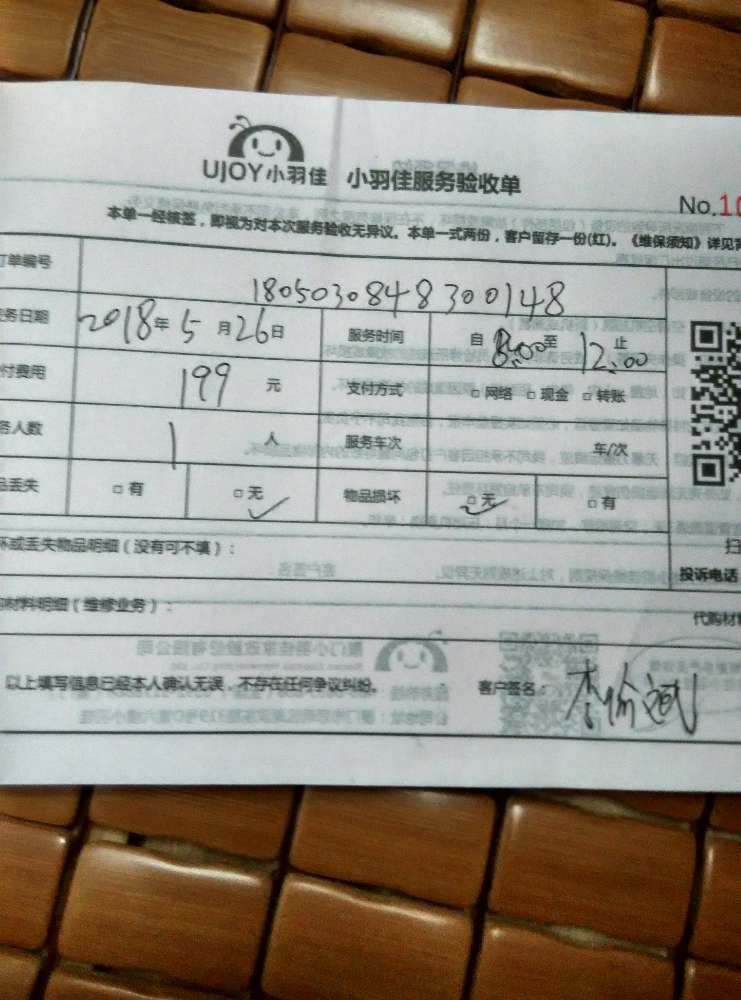 UJOY小羽佳 小羽佳服务验收单
No.10
本单一经核签，即视为对本次服务验收无异议。本单一式两份，客户留存一份(红)。《维保须知》详见背
订单编号 180503084830 0148
务日期 2018年5月26日 服务时间 自8:00至12:00止
付费用 199元 支付方式 □网络 □现金 □转账
务人数 1人 服务车次 车/次
品丢失 □有 □无 ✓ 物品损坏 □无 ✓ □有
坏或丢失物品明细（没有可不填）： 扫
投诉电话
材料明细（维修业务）： 代购材
以上填写信息已经本人确认无误，不存在任何争议纠纷。 客户签名：